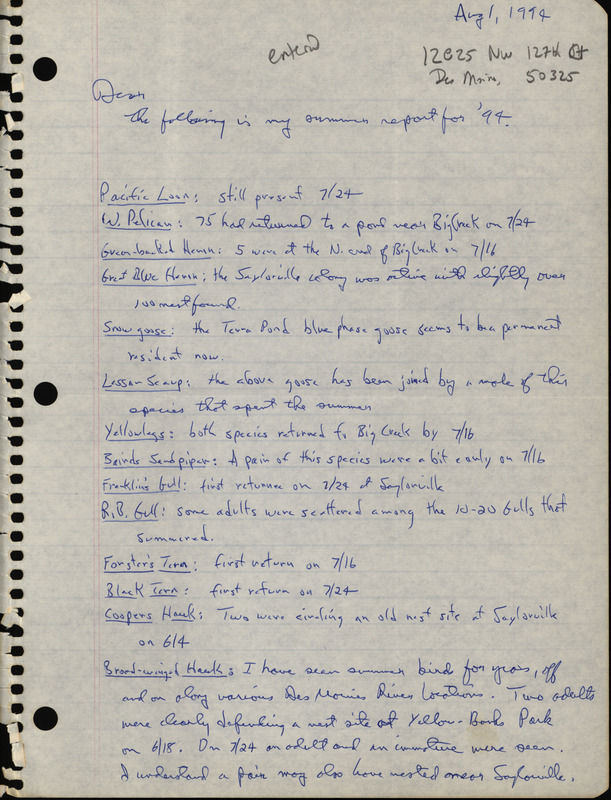 Aug 1, 1994
entered
NW 127th Ct
Des Moines, 50325
Dear
The following is my summer report for '94.
Pacific Loon: still present 7/24
W. Pelican: 75 had returned to a pond near Big Creek on 7/24
Green-backed Heron: 5 were at the N. end of Big Creek on 7/16
Great Blue Heron: the Saylorville colony was active with slightly over
100 nest found.
Snow goose: the Terra Pond blue phase goose seems to be a permanent
resident now.
Lesser Scaup: the above goose has been joined by a male of this
species that spent the summer
Yellowlegs: both species returned to Big Creek by 7/16
Bairds Sandpiper: A pair of this species were a bit early on 7/16
Franklin's Gull: first returnee on 7/24 at Saylorville
R.B. Gull: some adults were scattered among the 10-20 Gulls that
summered.
Forster's Tern: first return on 7/16
Black Tern: first return on 7/24
Coopers Hawk: Two were circling an old nest site at Saylorville
on 6/4
Broad-winged Hawk: I have seen summer bird for years, off
and on along various Des Moines River Locations. Two adults
were clearly defending a nest site at Yellow-Banks Park
on 6/18. On 7/24 an adult and an immature were seen.
I understand a pair may also have nested near Saylorville.